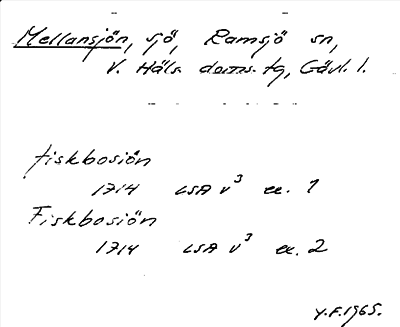 Mellansjön, sjö, Ramsjö sn,
V. Häls. doms. tg, Gävl. l.
fiskbosiön
1714 LSA V³ ee. 1
Fiskbosiön
1714 LSA V³ ee. 2
Y.F. 1965.